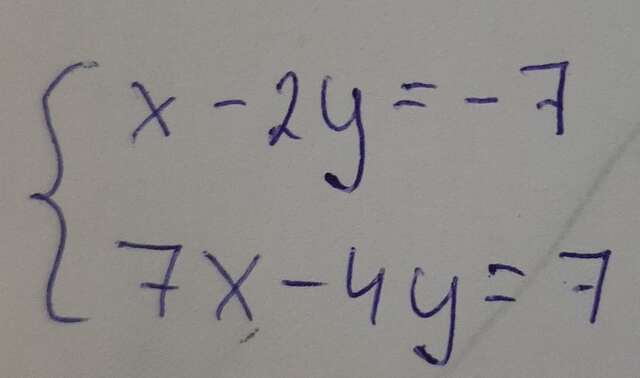 x - 2y = - 7
7x - 4y = 7